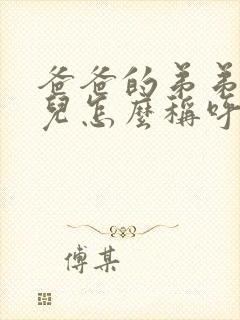 爸爸的弟弟
兒怎麼稱呼
傅某